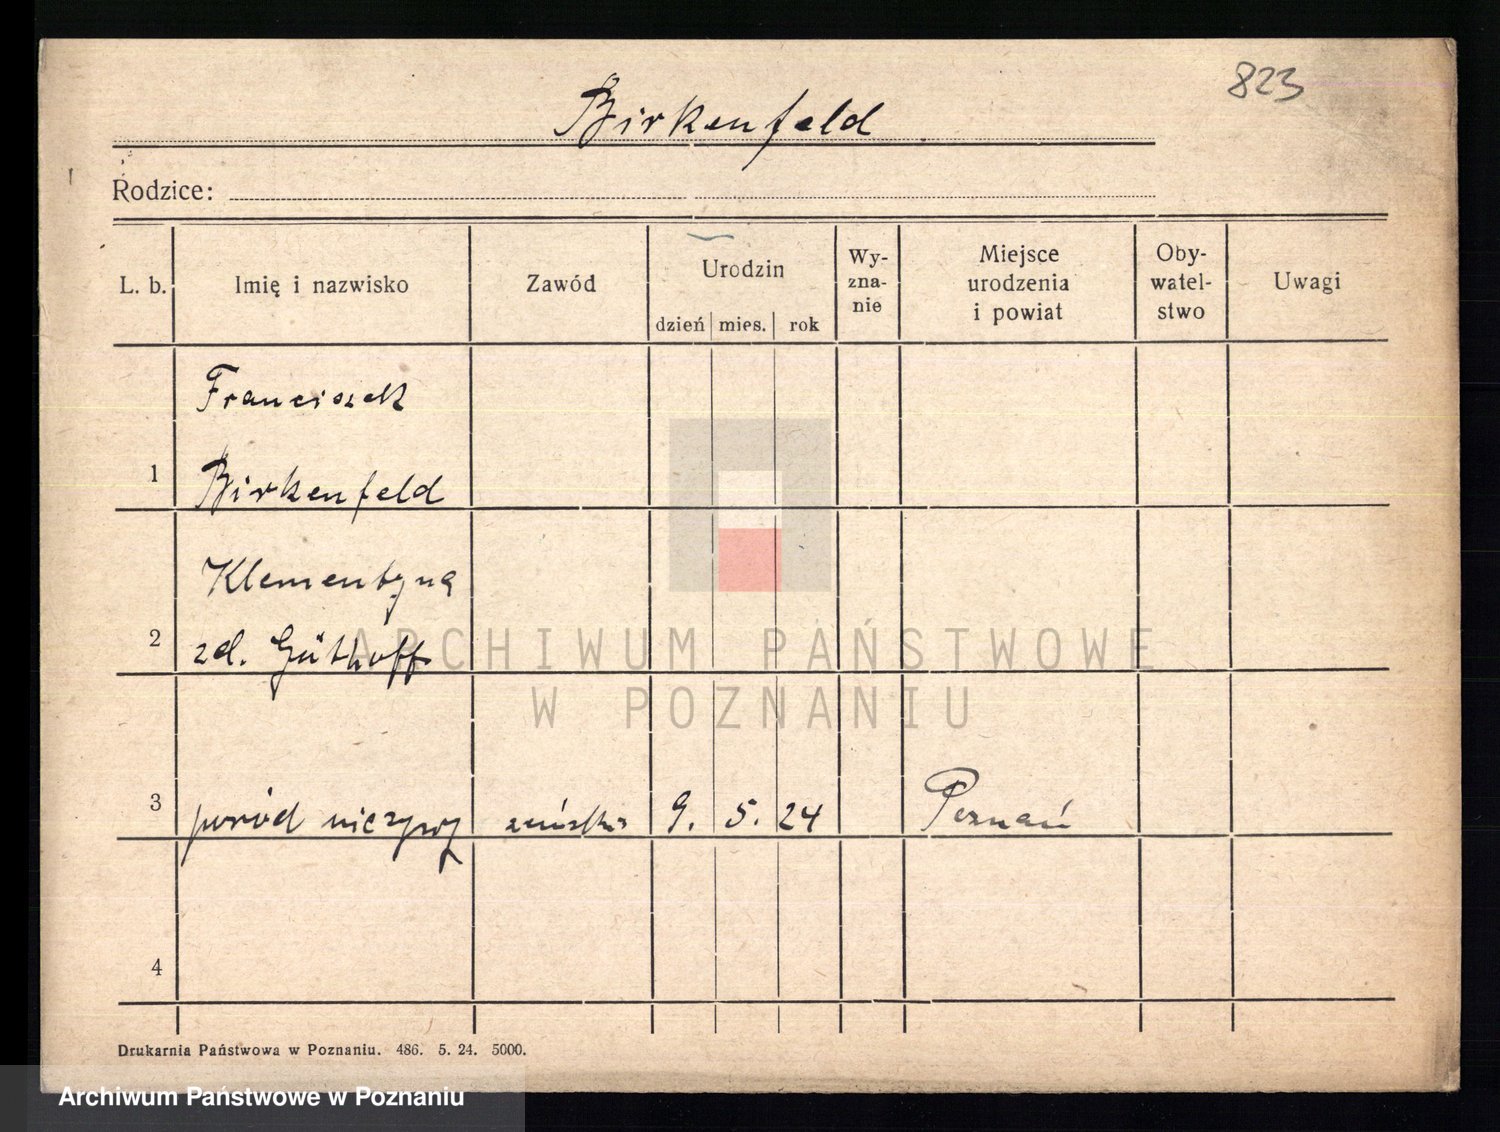 823
Birkenfeld
Rodzice:
L. b. Imię i nazwisko Zawód Urodzin dzień mies. rok Wy-zna-nie Miejsce urodzenia i powiat Oby-watel-stwo Uwagi
Franciszek
1 Birkenfeld
Klementyna
2 zd. Güthoff
3 poród nieżywy żeński 9. 5. 24 Poznań
4
ARCHIWUM PAŃSTWOWE
W POZNANIU
Drukarnia Państwowa w Poznaniu. 486. 5. 24. 5000.
Archiwum Państwowe w Poznaniu